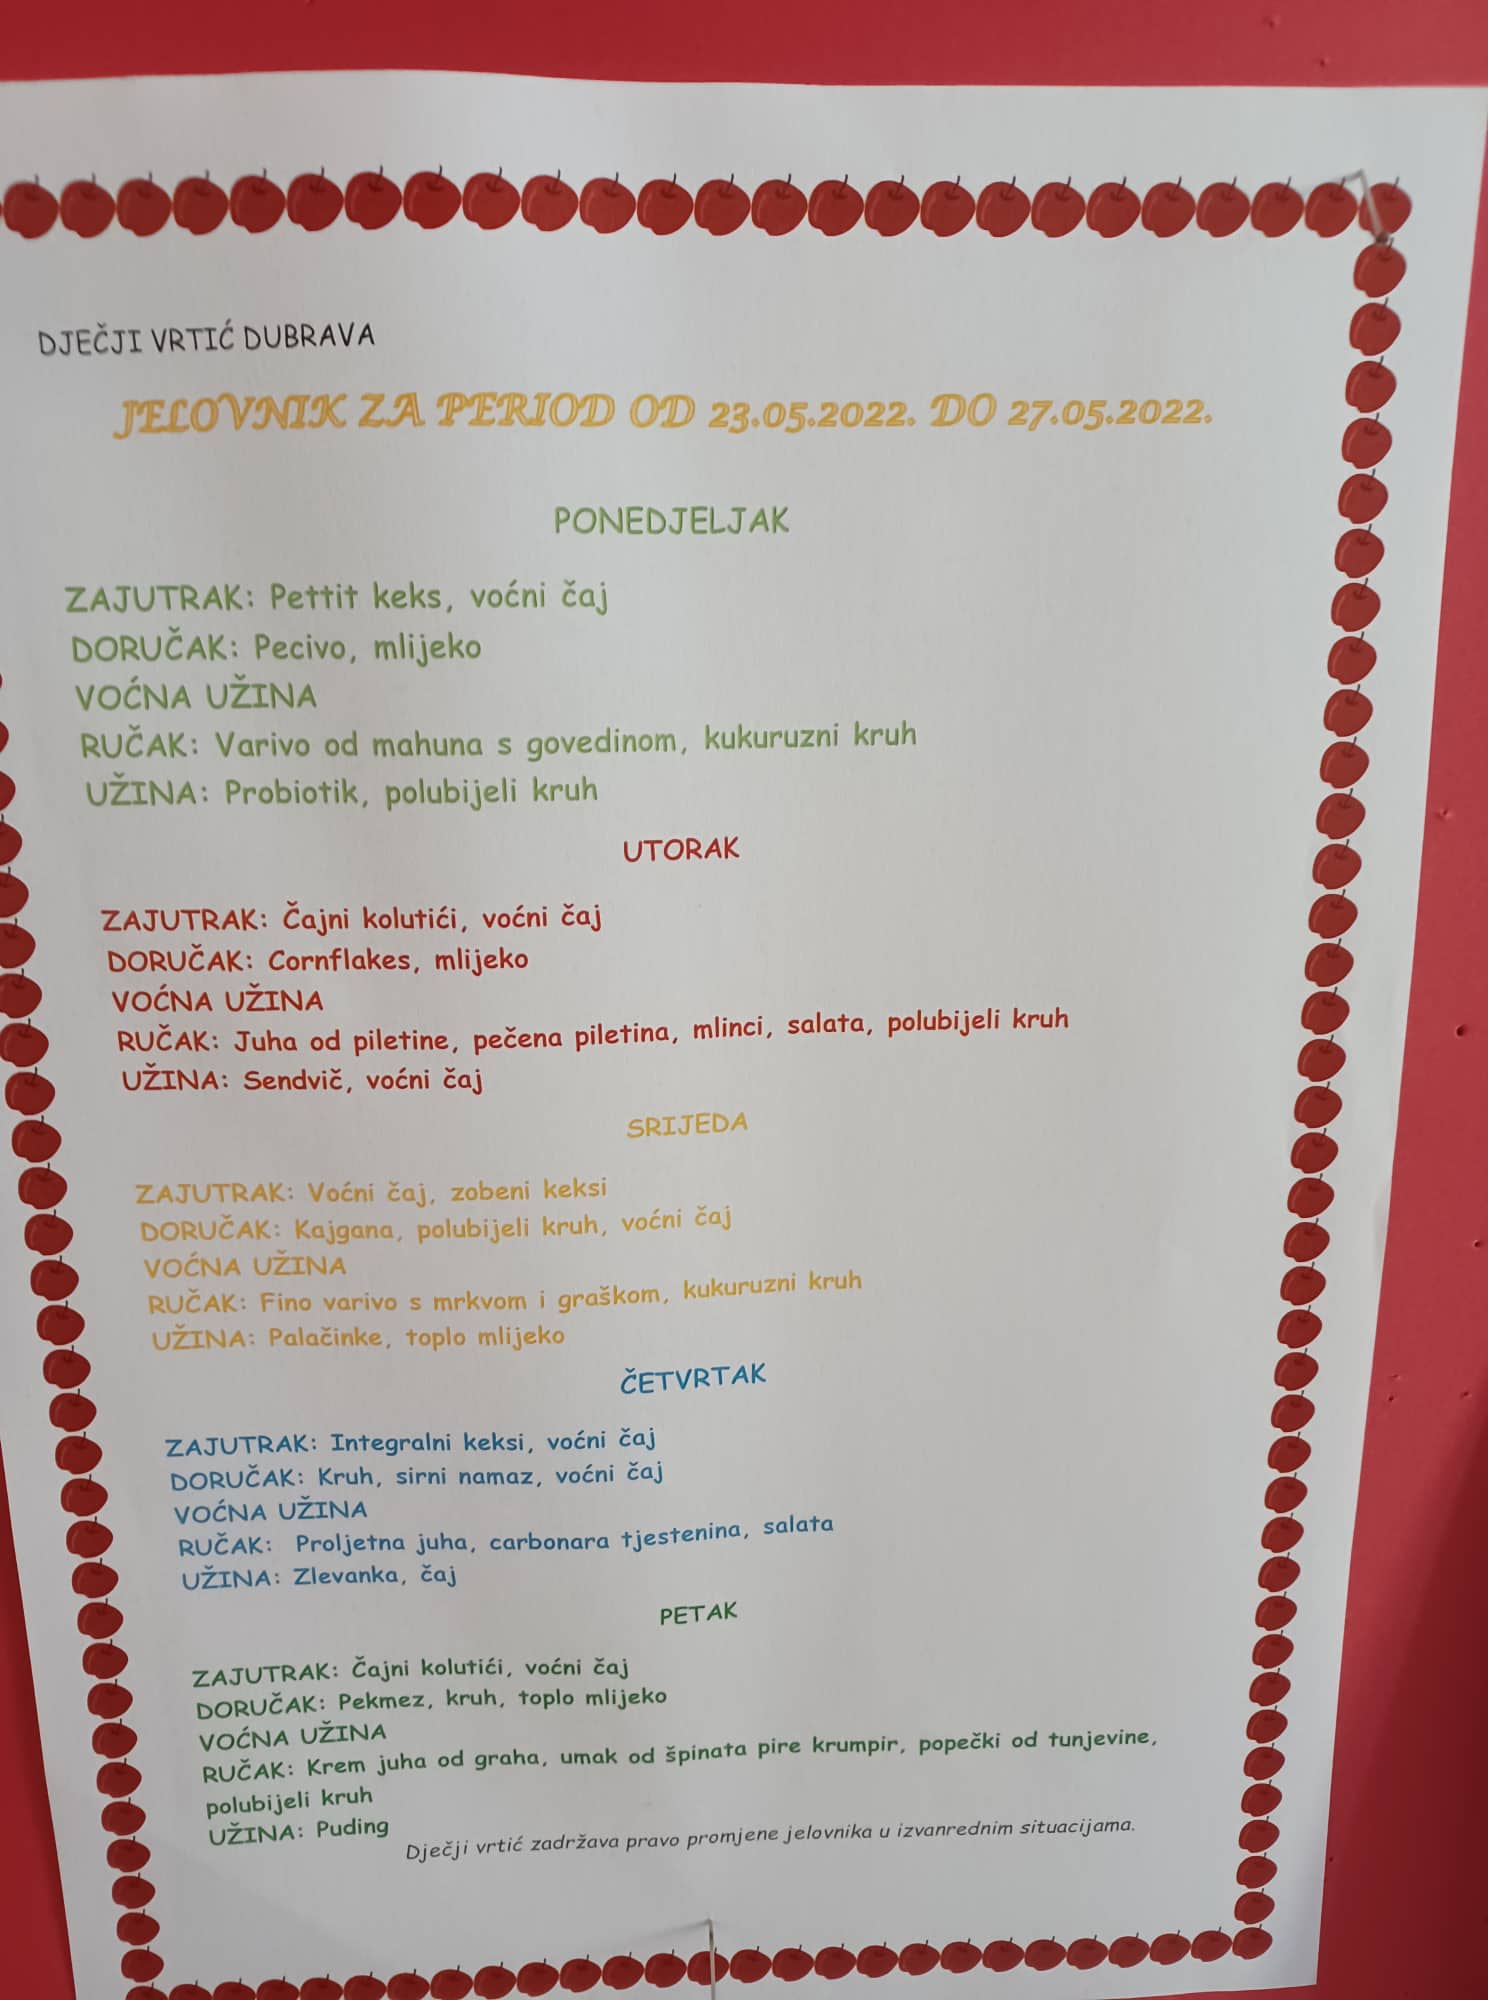 DJEČJI VRTIĆ DUBRAVA
JELOVNIK ZA PERIOD OD 23.05.2022. DO 27.05.2022.
PONEDJELJAK
ZAJUTRAK: Pettit keks, voćni čaj
DORUČAK: Pecivo, mlijeko
VOĆNA UŽINA
RUČAK: Varivo od mahuna s govedinom, kukuruzni kruh
UŽINA: Probiotik, polubijeli kruh
UTORAK
ZAJUTRAK: Čajni kolutići, voćni čaj
DORUČAK: Cornflakes, mlijeko
VOĆNA UŽINA
RUČAK: Juha od piletine, pečena piletina, mlinci, salata, polubijeli kruh
UŽINA: Sendvič, voćni čaj
SRIJEDA
ZAJUTRAK: Voćni čaj, zobeni keksi
DORUČAK: Kajgana, polubijeli kruh, voćni čaj
VOĆNA UŽINA
RUČAK: Fino varivo s mrkvom i graškom, kukuruzni kruh
UŽINA: Palačinke, toplo mlijeko
ČETVRTAK
ZAJUTRAK: Integralni keksi, voćni čaj
DORUČAK: Kruh, sirni namaz, voćni čaj
VOĆNA UŽINA
RUČAK: Proljetna juha, carbonara tjestenina, salata
UŽINA: Zlevanka, čaj
PETAK
ZAJUTRAK: Čajni kolutići, voćni čaj
DORUČAK: Pekmez, kruh, toplo mlijeko
VOĆNA UŽINA
RUČAK: Krem juha od graha, umak od špinata pire krumpir, popečki od tunjevine,
polubijeli kruh
UŽINA: Puding
Dječji vrtić zadržava pravo promjene jelovnika u izvanrednim situacijama.